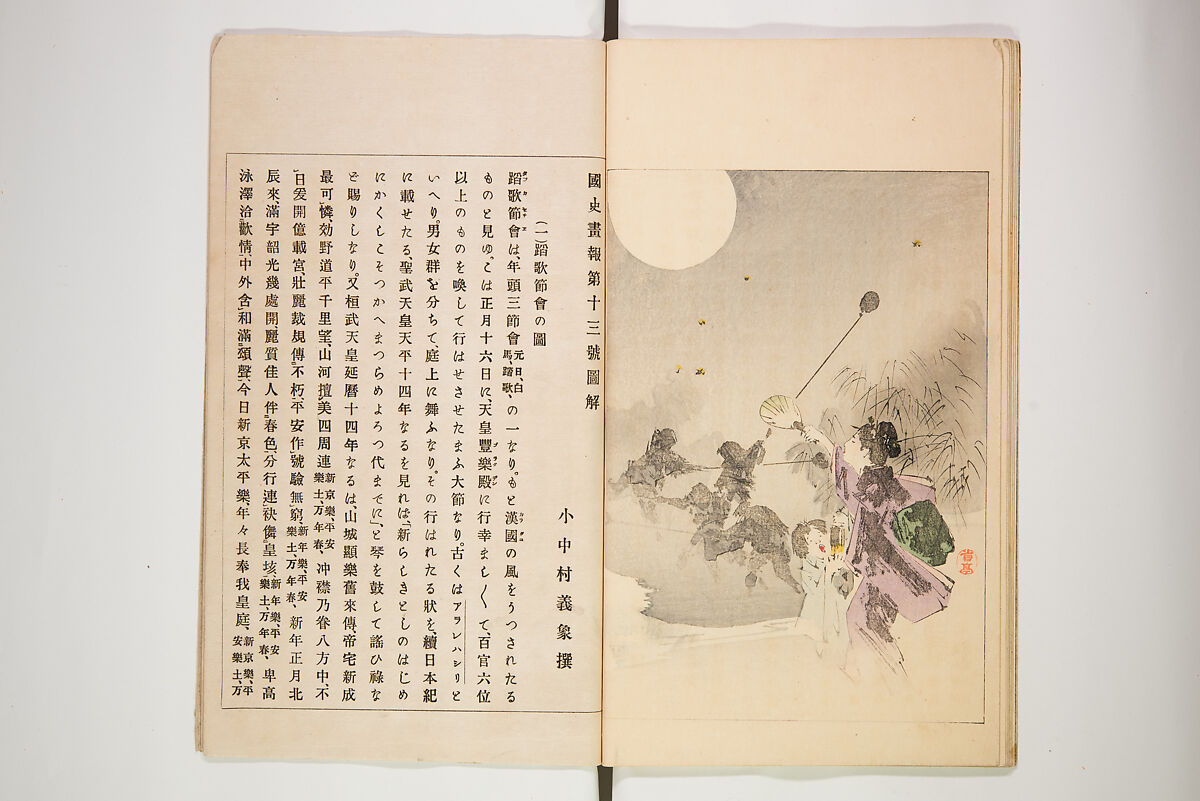 省亭
國史畫報第十三號圖解
小中村義象撰
(一)蹈歌節會の圖
蹈歌節會は、年頭三節會元日、白馬、踏歌、の一なり。もと漢國の風をうつされたる
ものと見ゆ。こは正月十六日に、天皇豐樂殿に行幸ましく て、百官六位
以上のものを喚して行はせさせたまふ大節なり。古くはアラレハシリと
いへり。男女群を分ちて、庭上に舞ふなり。その行はれたる狀を、續日本紀
に載せたる、聖武天皇天平十四年なるを見れば、「新らしきとしのはじめ
にかくしこそつかへまつらめよろつ代までに」、と琴を鼓して謠ひ祿な
ど賜りしなり。又桓武天皇延暦十四年なるは、山城顯樂舊來傳、帝宅新成
最可憐、効野道平千里望、山河擅美四周連新京樂、平安樂土、万年春、冲襟乃眷八方中、不
日爰開億載宮、壯麗裁規傳不朽、平安作號驗無窮、新年樂、平安樂土、万年春、新年正月北
辰來、滿宇韶光幾處開、麗質佳人伴春色、分行連袂儛皇垓、新年樂、平安樂土、万年春、卑高
泳澤洽歡情、中外含和滿頌聲、今日新京太平樂、年々長奉我皇庭、新京樂、平安樂土、万